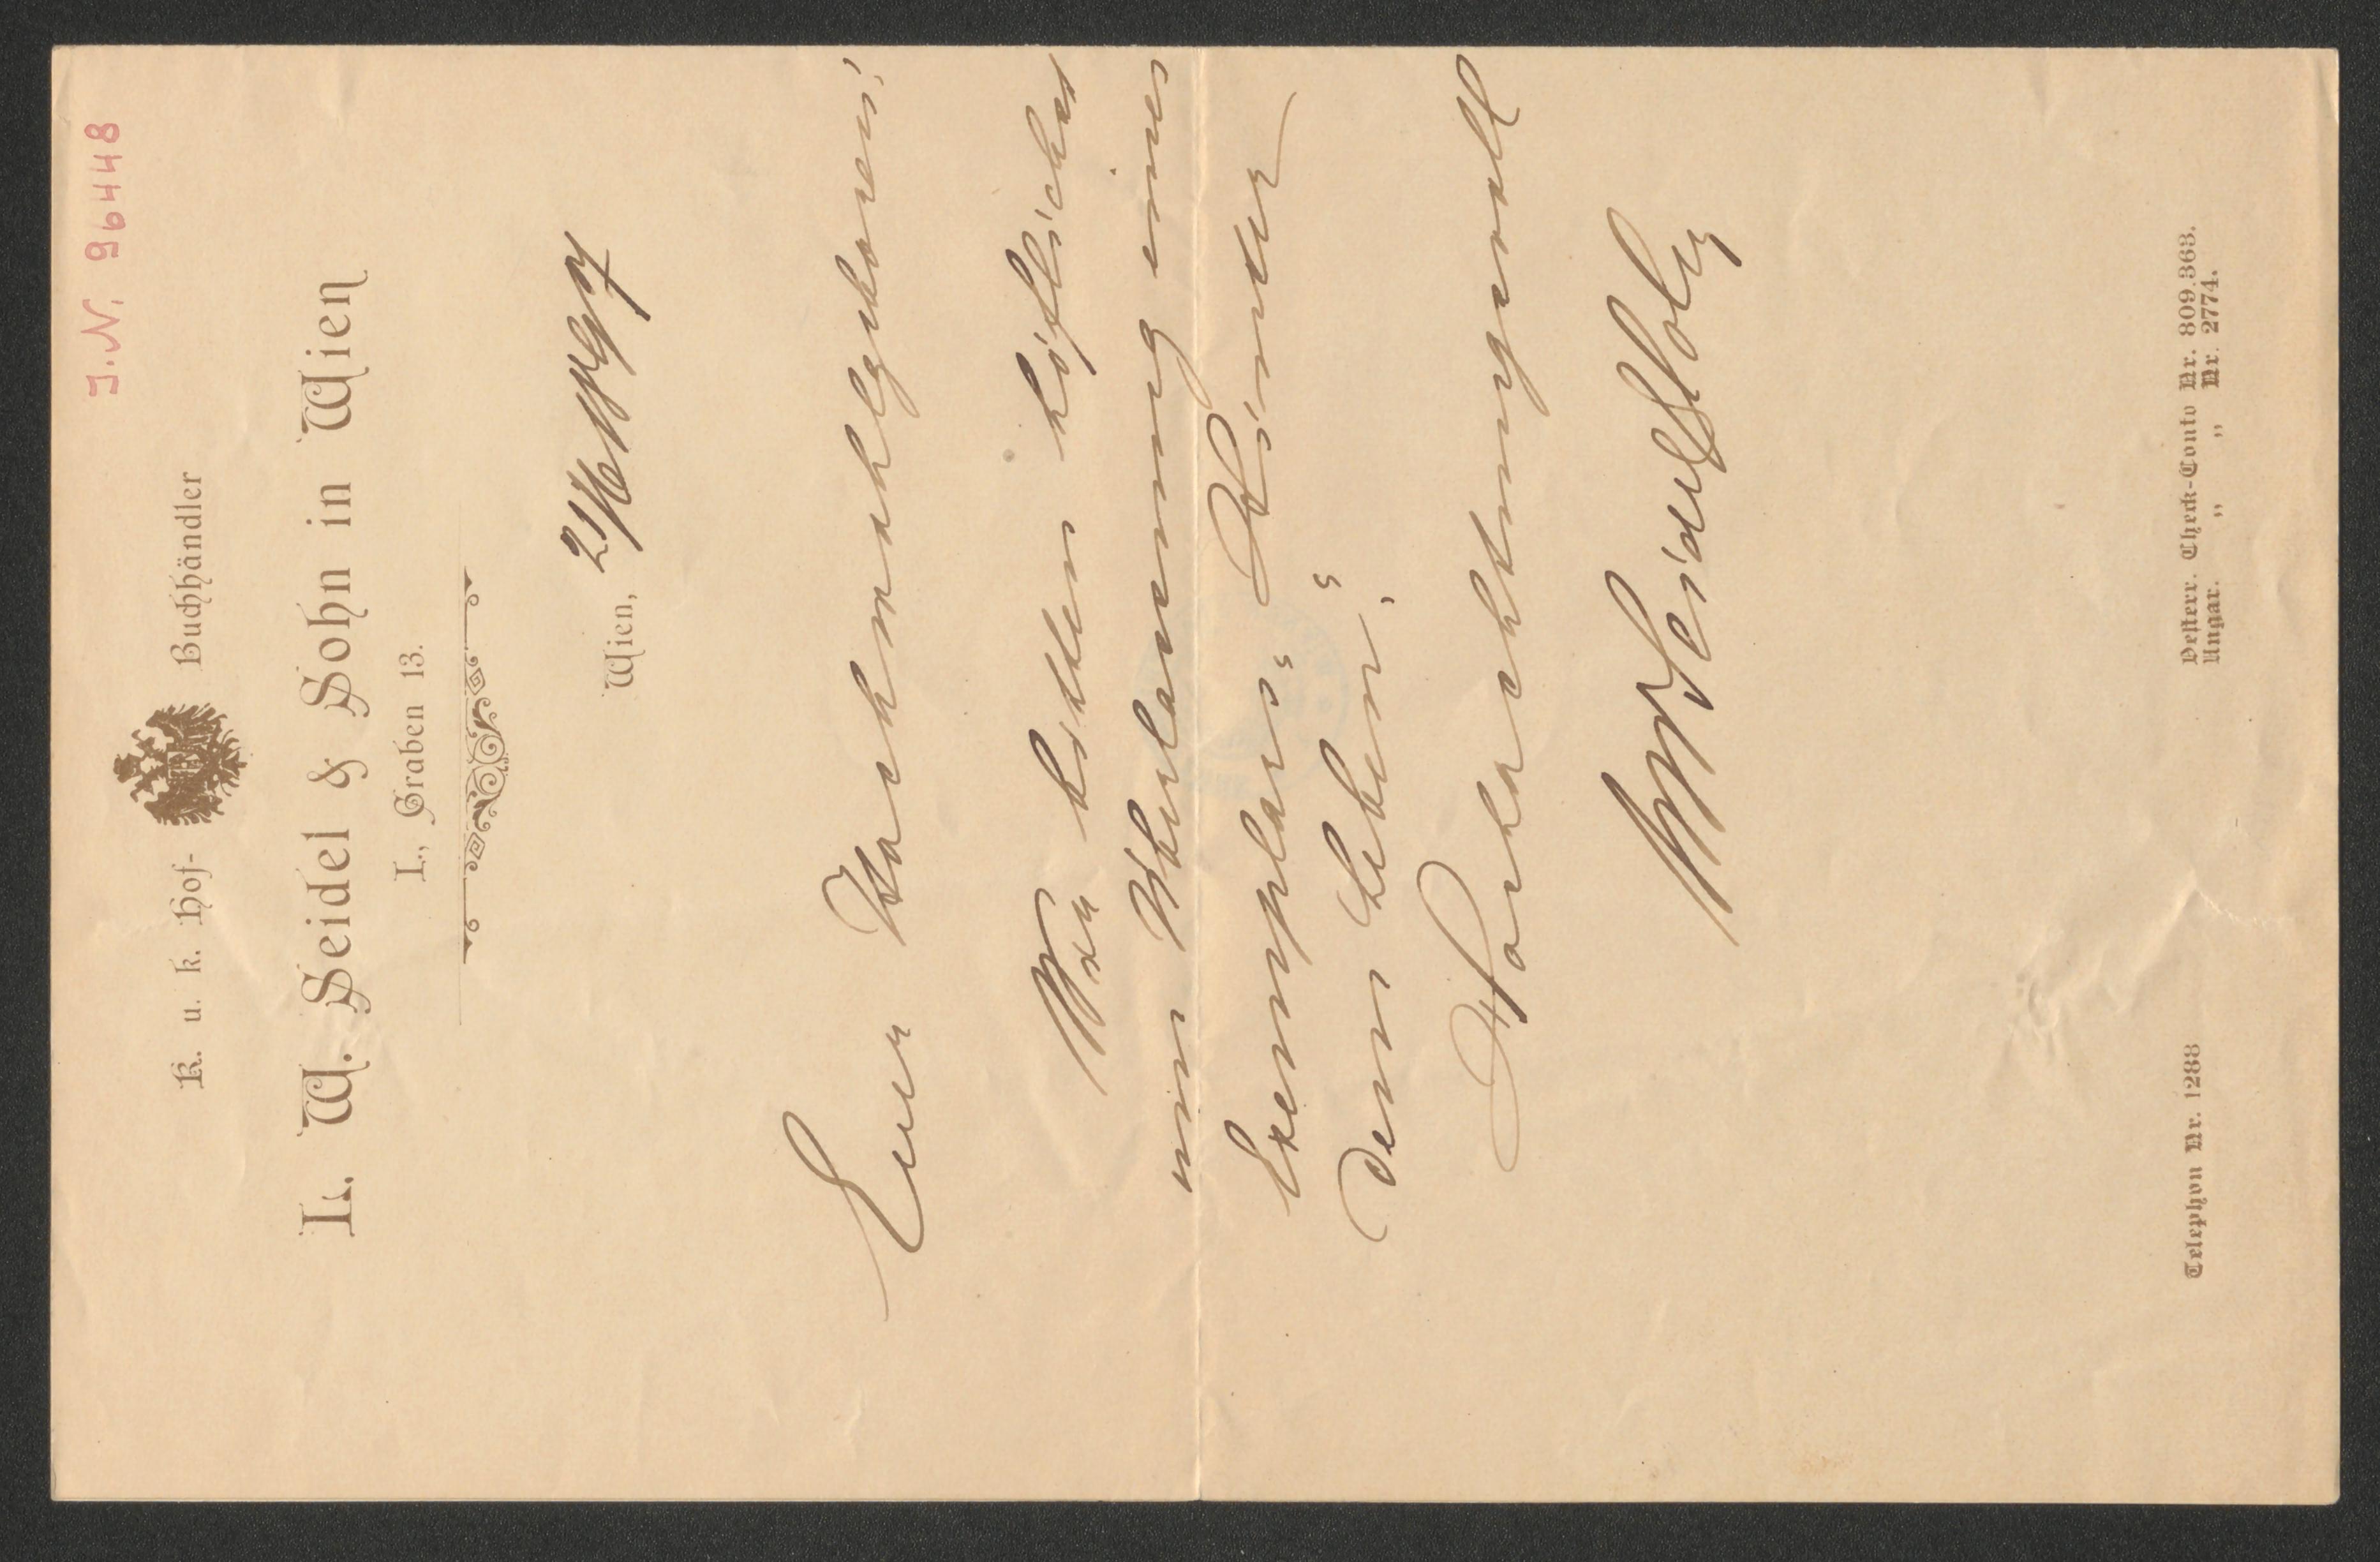 J.N. 96448
K. u. k. Hof- Buchhändler
L. W. Seidel & Sohn in Wien
I., Graben 13.
Wien, 21/6 1897
Euer Hochwohlgeboren!
Wir bitten höflichst
um Überlassung eines
Exemplars: „Hinter
dem Leben“.
Hochachtungsvoll
LW Seidel & Sohn
Telephon Nr. 1288
Oesterr. Check-Conto Nr. 809.363.
Ungar. „ „ Nr. 2774.